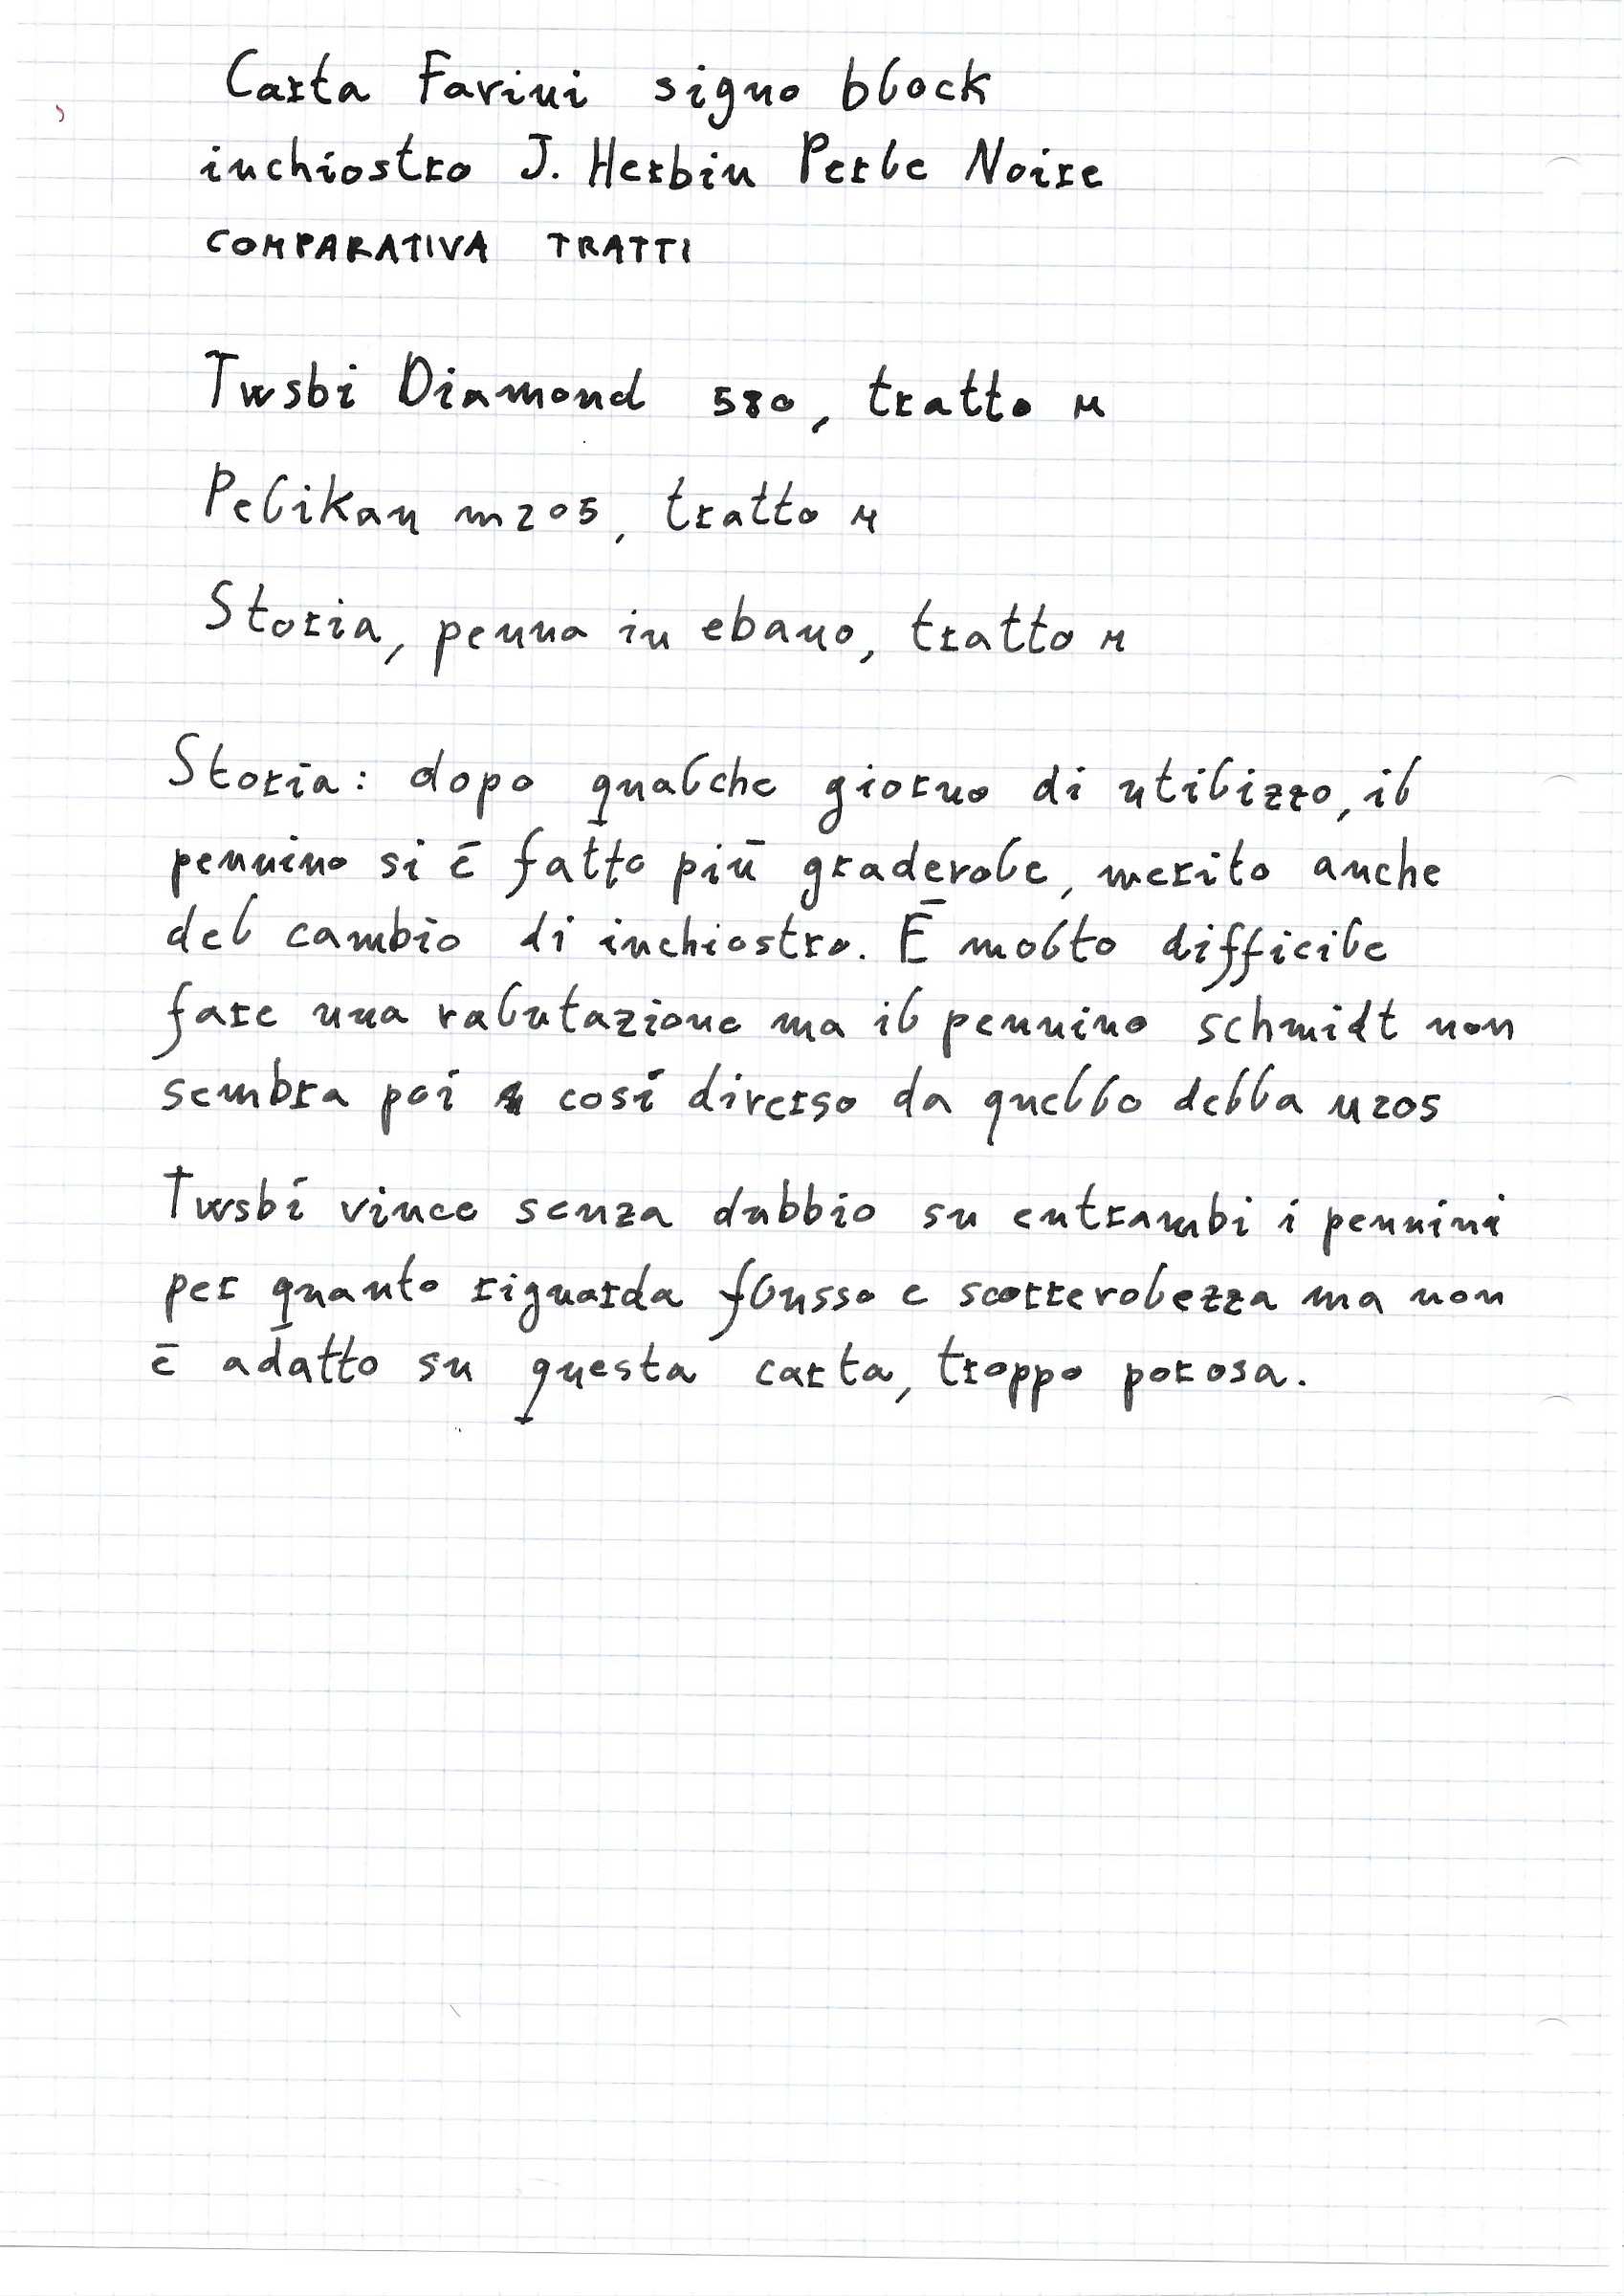 Carta Favini signo block
inchiostro J. Herbin Perle Noire
COMPARATIVA TRATTI
Twsbi Diamond 580, tratto M
Pelikan m205, tratto M
Storia, penna in ebano, tratto M
Storia: dopo qualche giorno di utilizzo, il
pennino si è fatto più gradevole, merito anche
del cambio di inchiostro. È molto difficile
fare una valutazione ma il pennino schmidt non
sembra poi così diverso da quello della M205
Twsbi vince senza dubbio su entrambi i pennini
per quanto riguarda flusso e scorrevolezza ma non
è adatto su questa carta, troppo porosa.